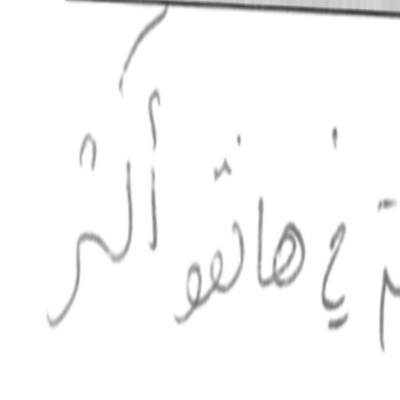 في هاتفه أكثر